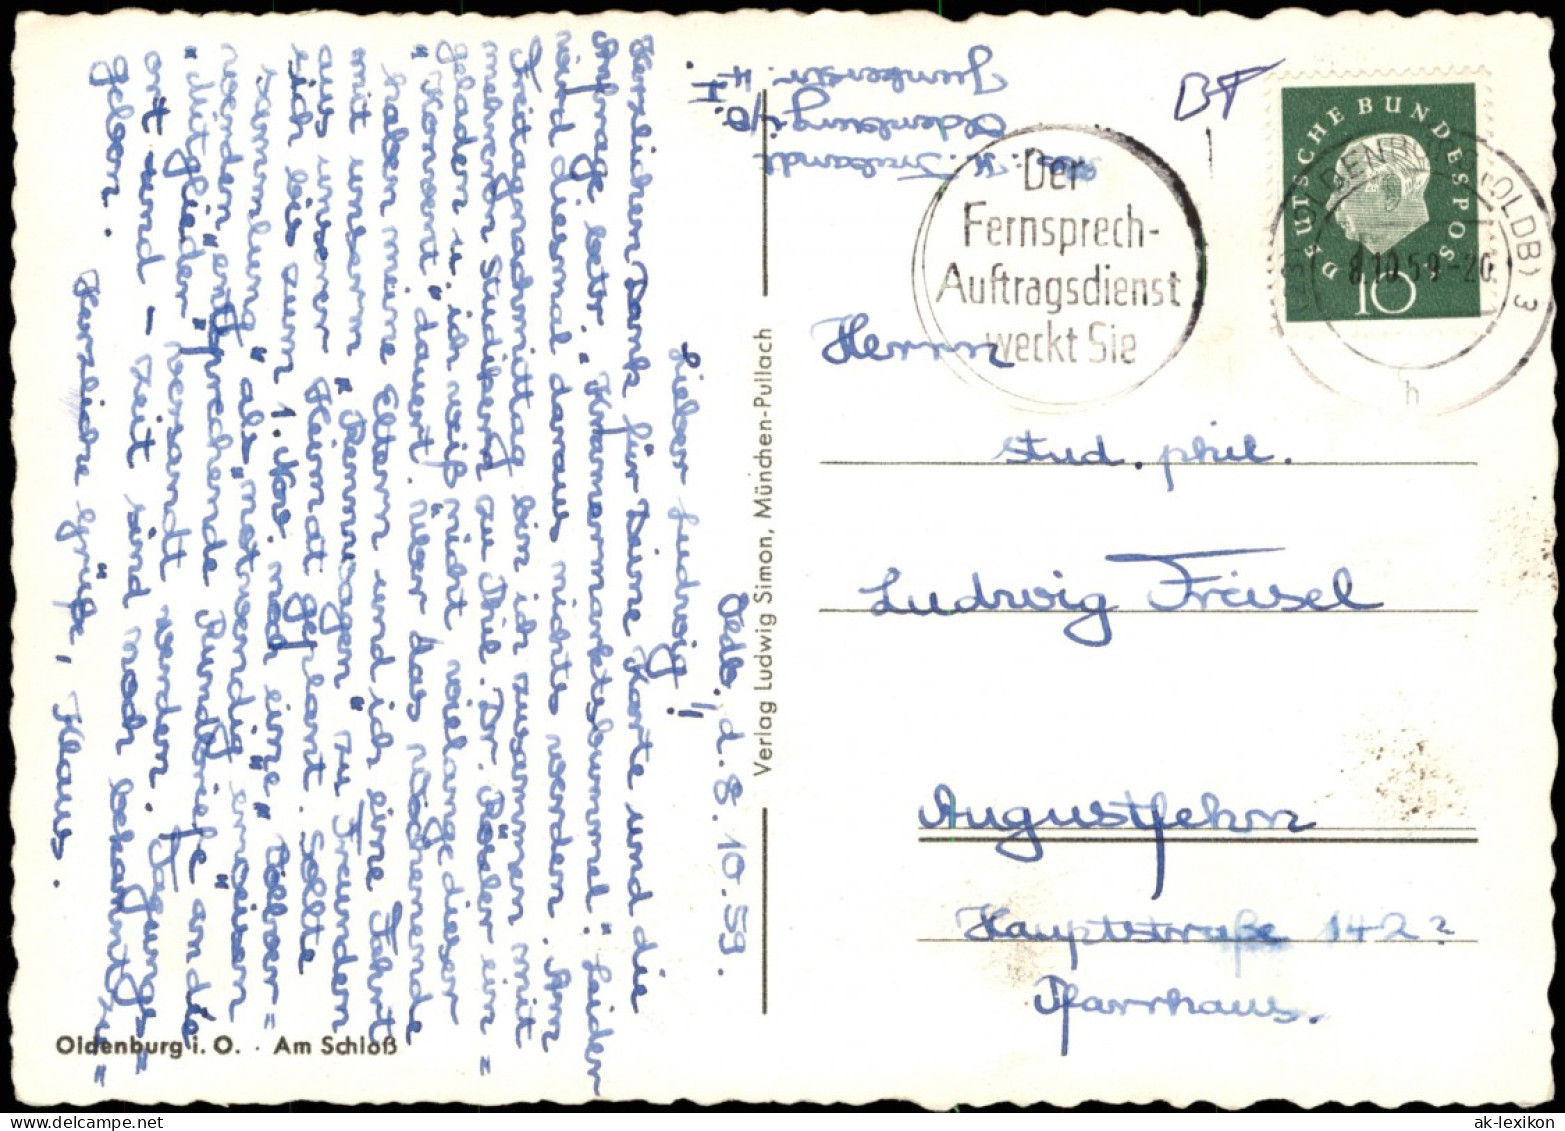 Oldb., d. 8.10.59.
Lieber Ludwig!
Herzlichen Dank für Deine Karte und die
Anfrage betr. "Kramermarktsbummel". Leider
wird diesmal daraus nichts werden. Am
Freitagnachmittag bin ich zusammen mit
mehreren Studikern zu Phil. Dr. Rösler ein=
geladen u. ich weiß nicht, wie lange dieser
"Konvent" dauert. Über das Wochenende
haben meine Eltern und ich eine Fahrt
mit unserm "Rennwagen" zu Freunden
aus unserer Heimat geplant. Sollte
sich bis zum 1. Nov. noch eine "Völker=
sammlung" als "notwendig" erweisen
werden "entsprechende Rundbriefe an die
"Mitglieder" versandt werden. Tagungs=
ort und -zeit sind noch bekanntzu=
geben.
Herzliche Grüße, Klaus.
Oldenburg i. O. · Am Schloß
Verlag Ludwig Simon, München-Pullach
Abs.: K. Trabandt
Oldenburg i/O.
Junkerstr. 4
II.
BF
Der
Fernsprech-
Auftragsdienst
weckt Sie
DEUTSCHE BUNDESPOST
10
OLDENBURG (OLDB) 3
8.10.59-20
h
Herrn
stud. phil.
Ludwig Friesel
Augustfehn
Hauptstraße 142?
Pfarrhaus.
ak-lexikon